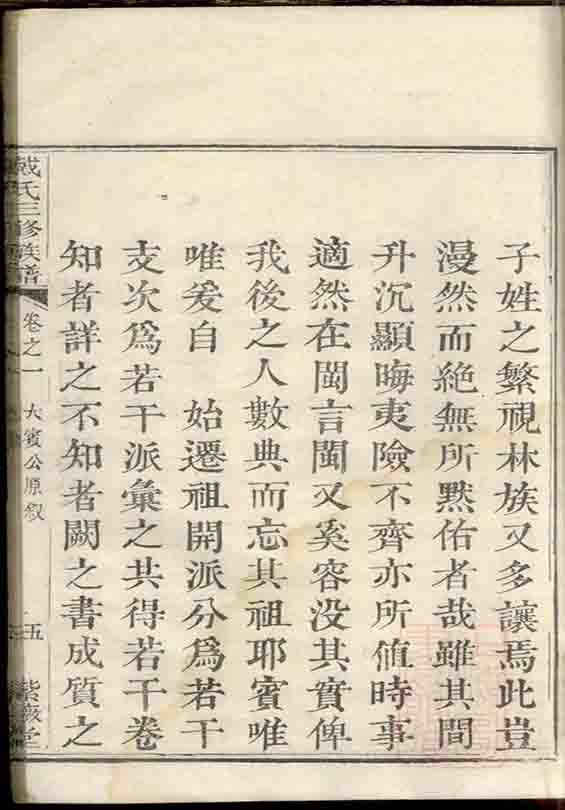 子姓之繁視林族又多讓焉此豈
漫然而絶無所黙佑者哉雖其間
升沉顯晦夷險不齊亦所值時事
適然在閩言閩又奚容没其實俾
我後之人數典而忘其祖耶賓唯
唯爰自　始遷祖開派分爲若干
支次爲若干派彙之共得若干卷
知者詳之不知者闕之書成質之
戴氏三修族譜
卷之一
大賓公原叙
五
紫薇堂